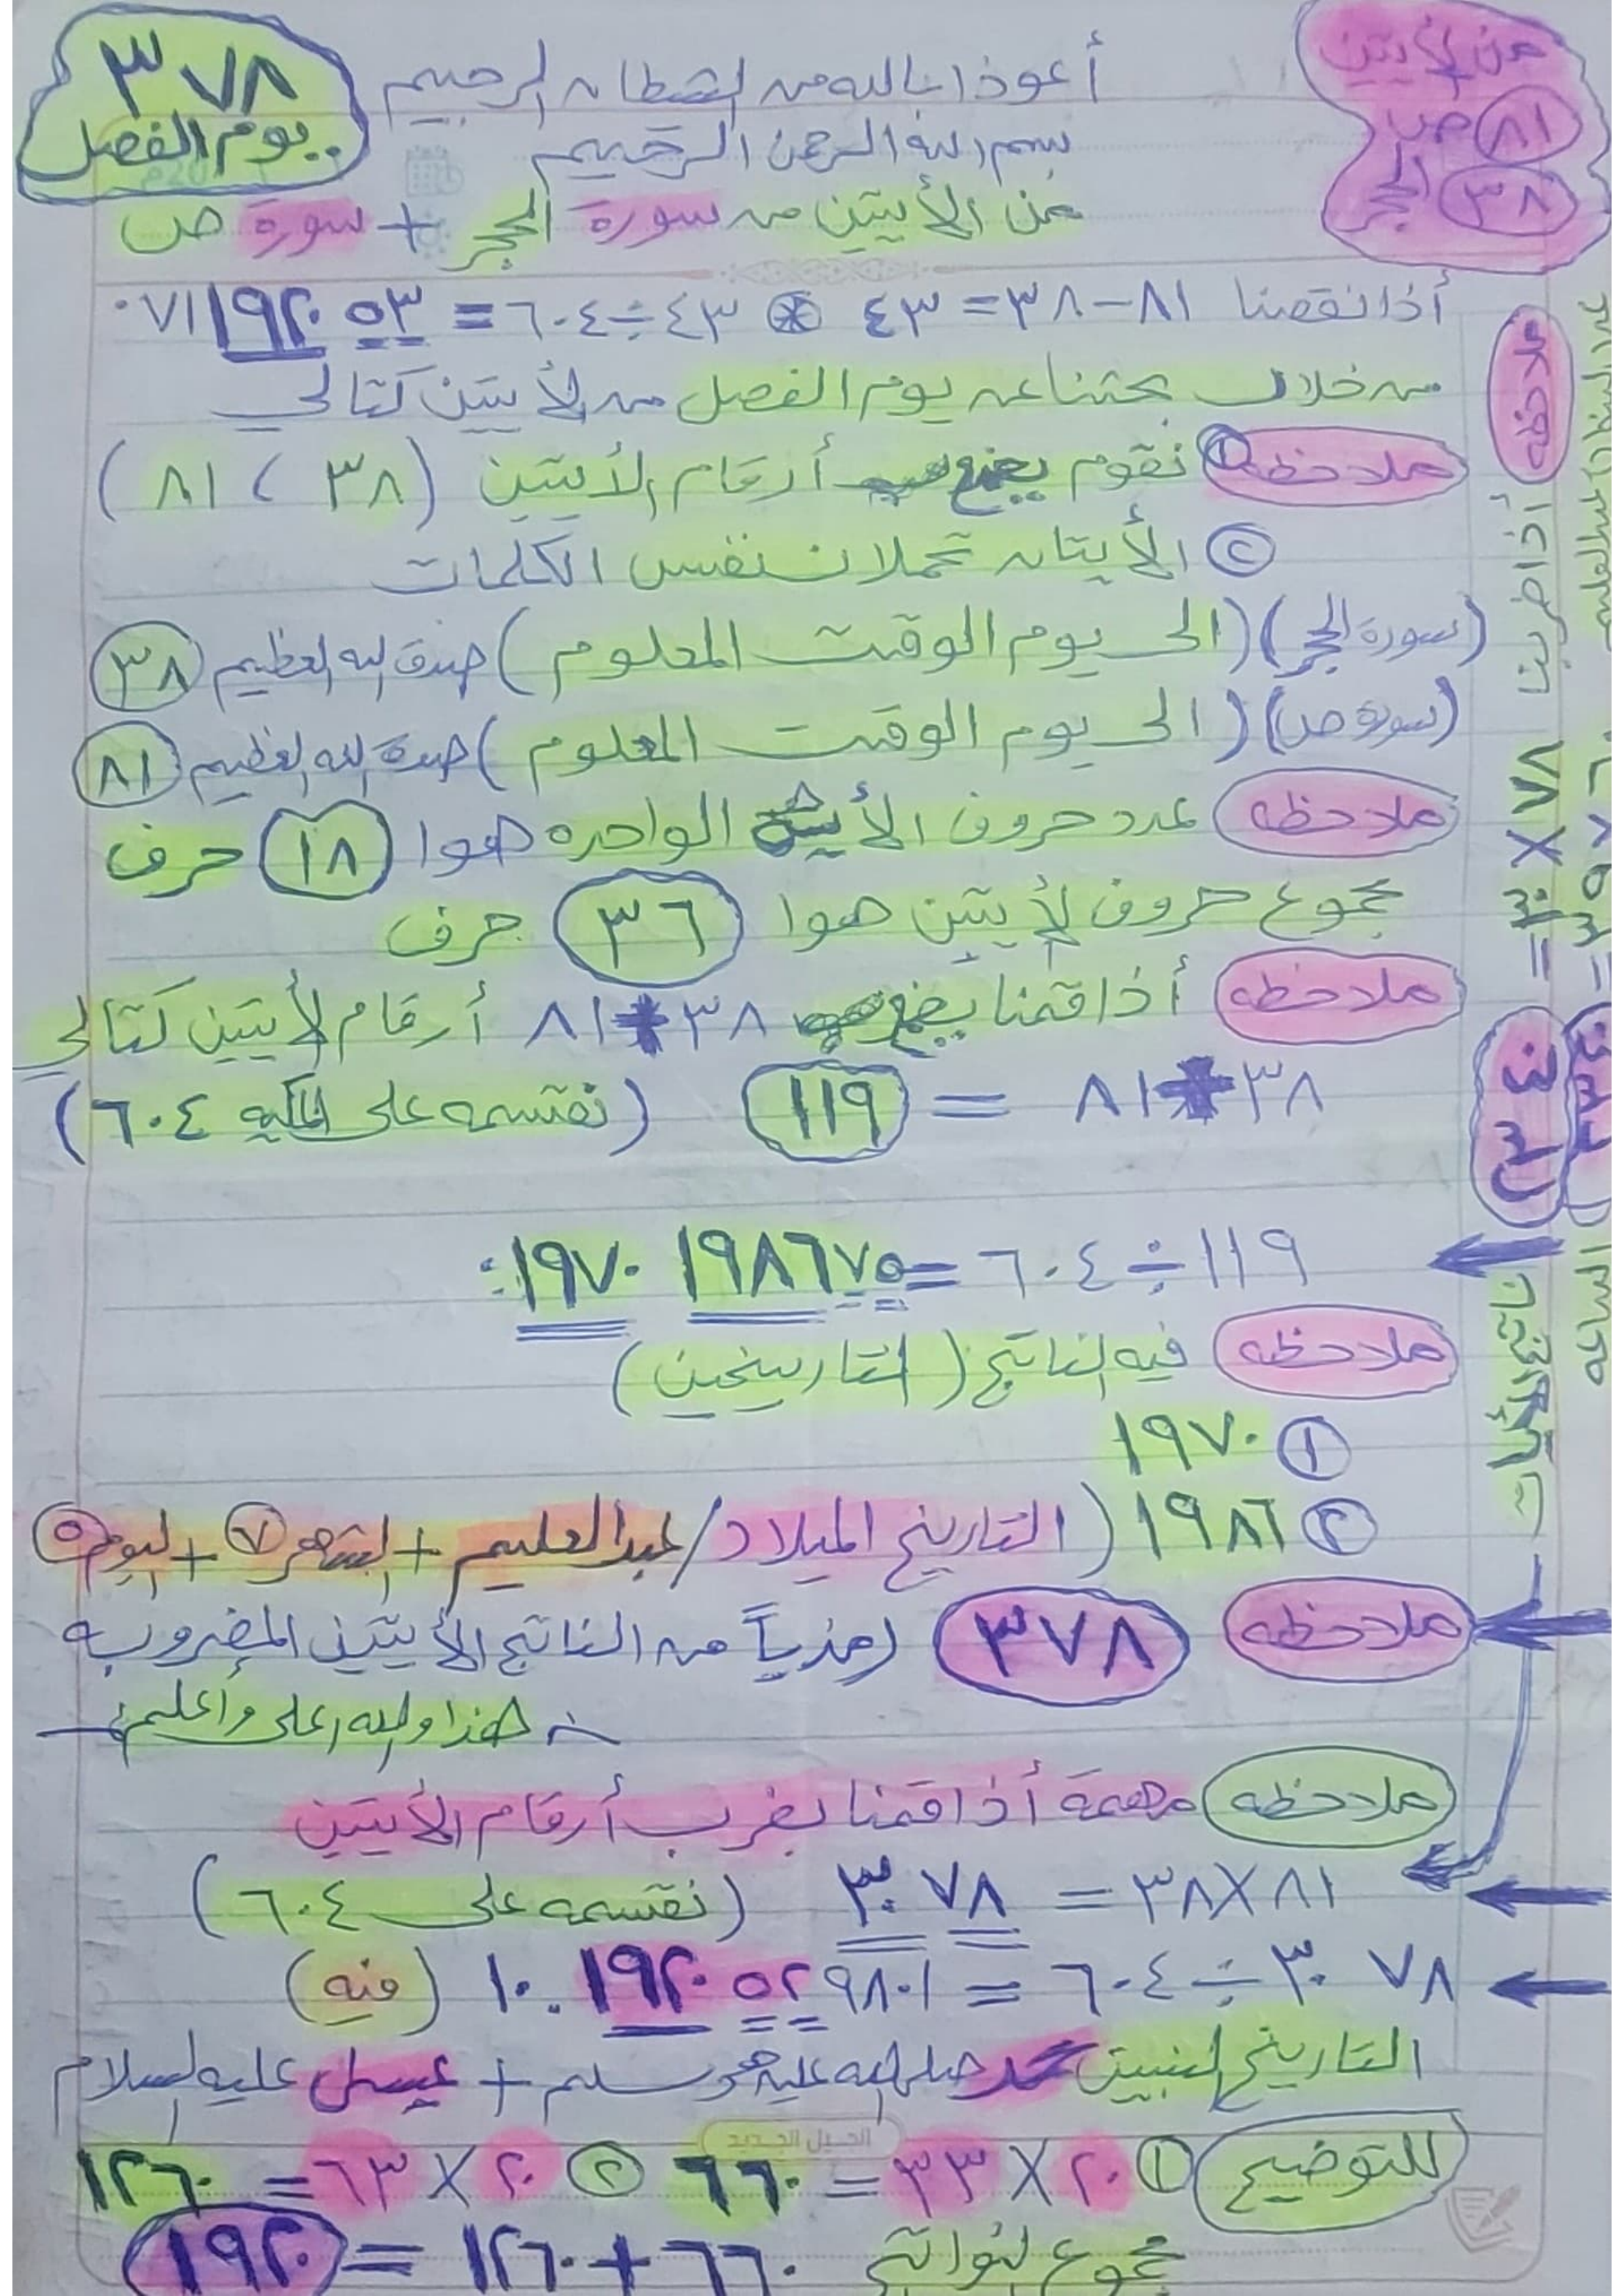 ٣٧٨
يوم الفصل
عن الأيتين
٨١ ص
٣٨ الحجر
أعوذ بالله من الشطان الرجيم
بسم الله الرحمن الرحيم
عن الأيتين من سورة الحجر + سورة ص
أذا نقصنا ٨١ – ٣٨ = ٤٣ ⊛ ٤٣ ÷ ٦٠٤ = ٠٧١١٩٢٠٥٣
من خلال بحثنا عن يوم الفصل من الأيتين كتالي
ملاحظه ① نقوم أرقام الأيتين ( ٣٨ ، ٨١ )
② الأيتان تحملان نفس الكلمات
(سورة الحجر) (الى يوم الوقت المعلوم) صدق الله العظيم ٣٨
(سورة ص) (الى يوم الوقت المعلوم) صدق الله العظيم ٨١
ملاحظه عدد حروف الأية الواحده هوا ١٨ حرف
مجموع حروف الأيتين هوا ٣٦ حرف
ملاحظه أذا قمنا ٣٨ + ٨١ أرقام الأيتين كتالي
٣٨ + ٨١ = ١١٩ (نقسمه على ٦٠٤)
١١٩ ÷ ٦٠٤ = ١٩٧٠ ١٩٨٦٧٥
ملاحظه فيه الناتج (التاريخين)
① ١٩٧٠
② ١٩٨٦ (التاريخ الميلاد/عبدالعليم + الشهر ٧ + اليوم ٥
ملاحظه ٣٧٨ رمزياً من الناتج الأيتين المضروبه
هذا والله اعلى وأعلم
ملاحظه مهمة أذا قمنا بضرب أرقام الأيتين
٨١ X ٣٨ = ٣٠٧٨ (نقسمه على ٦٠٤)
٣٠٧٨ ÷ ٦٠٤ = ١٠٠١٩٢٠٥٢٩٨٠١ (فيه)
التاريخ لنبيين محمد صلى الله عليه وسلم + عيسى عليه السلام
للتوضيح ① ٢٠ X ٣٣ = ٦٦٠ ② ٢٠ X ٦٣ = ١٢٦٠
مجموع النواتج ٦٦٠ + ١٢٦٠ = ١٩٢٠
ملاحظه
أذا ضربنا ٧٨ X ٣٠ = ٢٣٤٠
الساعه
الجيل الجديد